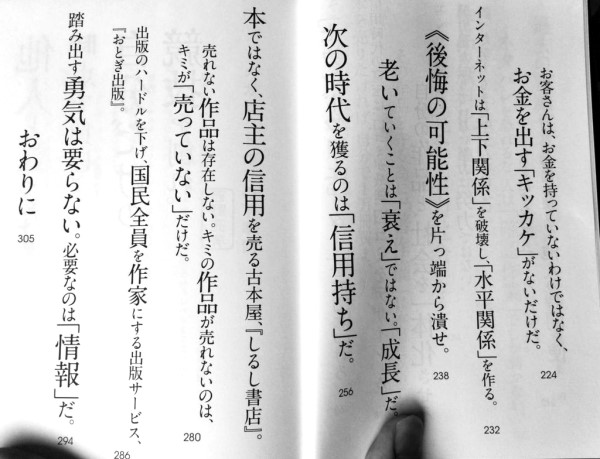 お客さんは、お金を持っていないわけではなく、
お金を出す「キッカケ」がないだけだ。
224
インターネットは「上下関係」を破壊し、「水平関係」を作る。
232
《後悔の可能性》を片っ端から潰せ。
238
老いていくことは「衰え」ではない。「成長」だ。
次の時代を獲るのは「信用持ち」だ。
256
本ではなく、店主の信用を売る古本屋、『しるし書店』。
売れない作品は存在しない。キミの作品が売れないのは、
キミが「売っていない」だけだ。
280
出版のハードルを下げ、国民全員を作家にする出版サービス、
『おとぎ出版』。
286
踏み出す勇気は要らない。必要なのは「情報」だ。
294
おわりに
305